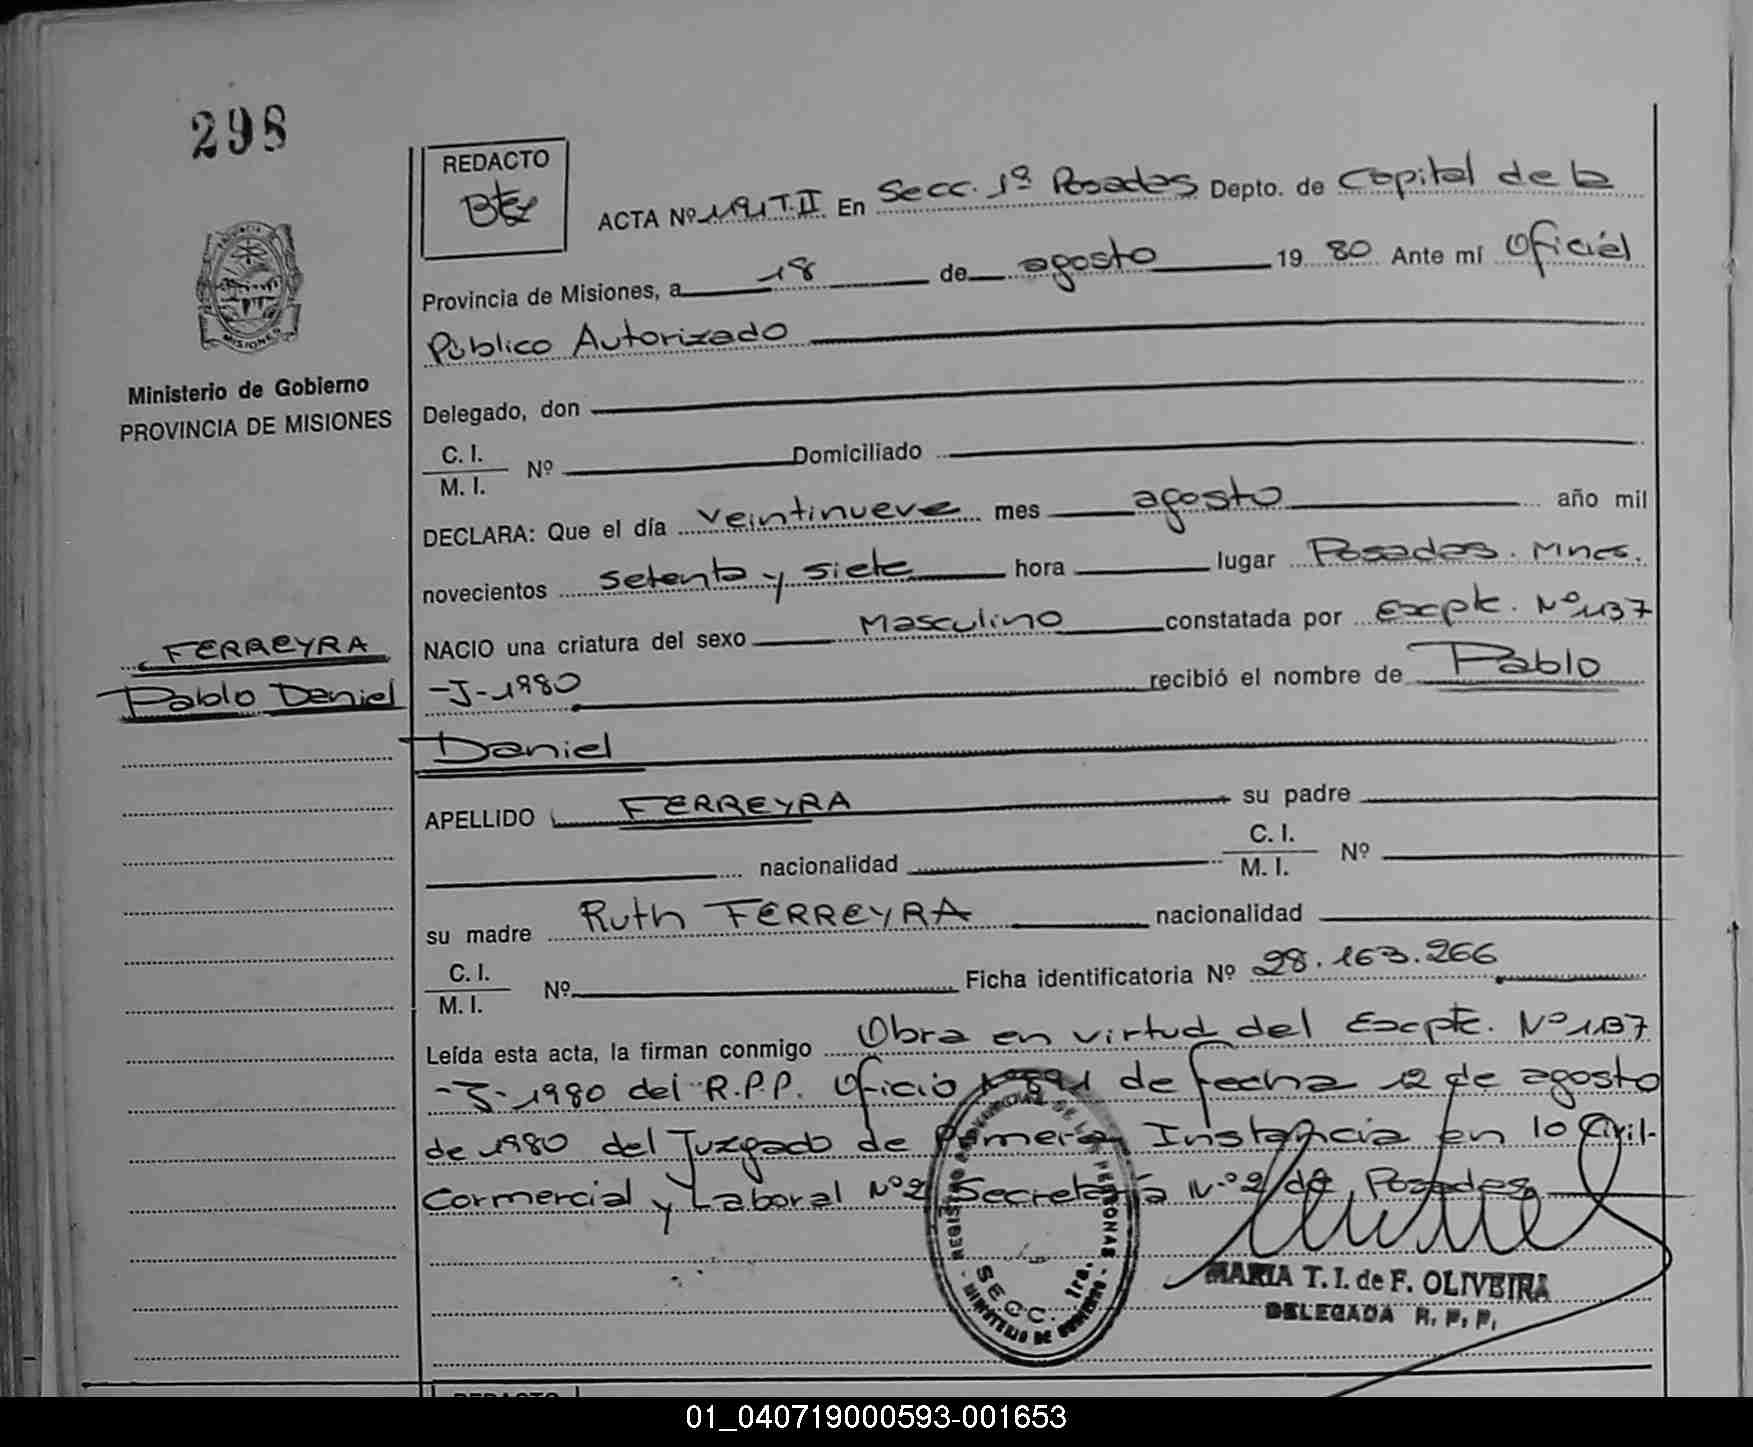 298
REDACTO
ACTA Nº 1191 T. II En Secc. 1ª Posadas Depto. de Capital de la
Provincia de Misiones, a 18 de agosto 19 80 Ante mí Oficial
Público Autorizado
MISIONES
Ministerio de Gobierno
PROVINCIA DE MISIONES
Delegado, don
C. I.
M. I. Nº Domiciliado
DECLARA: Que el día veintinueve mes agosto año mil
novecientos setenta y siete hora lugar Posadas. Mnes.
NACIO una criatura del sexo Masculino constatada por Excpte. Nº 1137
-J-1980 recibió el nombre de Pablo
Daniel
FERREYRA
Pablo Daniel
APELLIDO FERREYRA su padre
nacionalidad C. I.
M. I. Nº
su madre Ruth FERREYRA nacionalidad
C. I.
M. I. Nº Ficha identificatoria Nº 28.163.266
Leída esta acta, la firman conmigo Obra en virtud del Excpte. Nº 1137
-J-1980 del R.P.P. Oficio de fecha 12 de agosto
de 1980 del Juzgado de Primera Instancia en lo Civil-
Cormercial y Laboral Nº 2 Secretaría N.º 2 de Posadas
REGISTRO PROVINCIAL DE LAS PERSONAS
SECC. 1ra.
MINISTERIO DE GOBIERNO
MARIA T. I. de F. OLIVEIRA
DELEGADA R. P. P.
REDACTO
01_040719000593-001653